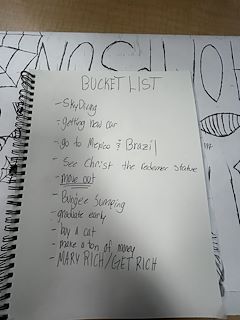 BUCKET LIST
- SkyDiving
- getting new car
- go to Mexico & Brazil
- See Christ the redeemer statue
- move out
- Bungee Jumping
- graduate early
- buy a cat
- make a ton of money
- MARY RICH/GET RICH